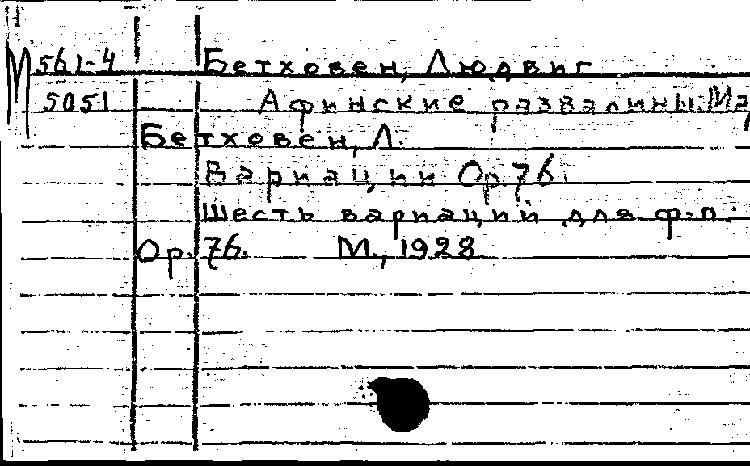 М 561-4 Бетховен, Людвиг
5051 Афинские развалины. Мар
Бетховен, Л.
Вариации Op. 76.
Шесть вариаций для ф-п.
Op. 76. М., 1928